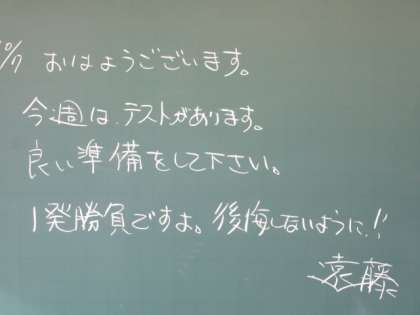 10/7 おはようございます。
今週は、テストがあります。
良い準備をして下さい。
1発勝負ですよ。後悔しないように!!
遠藤